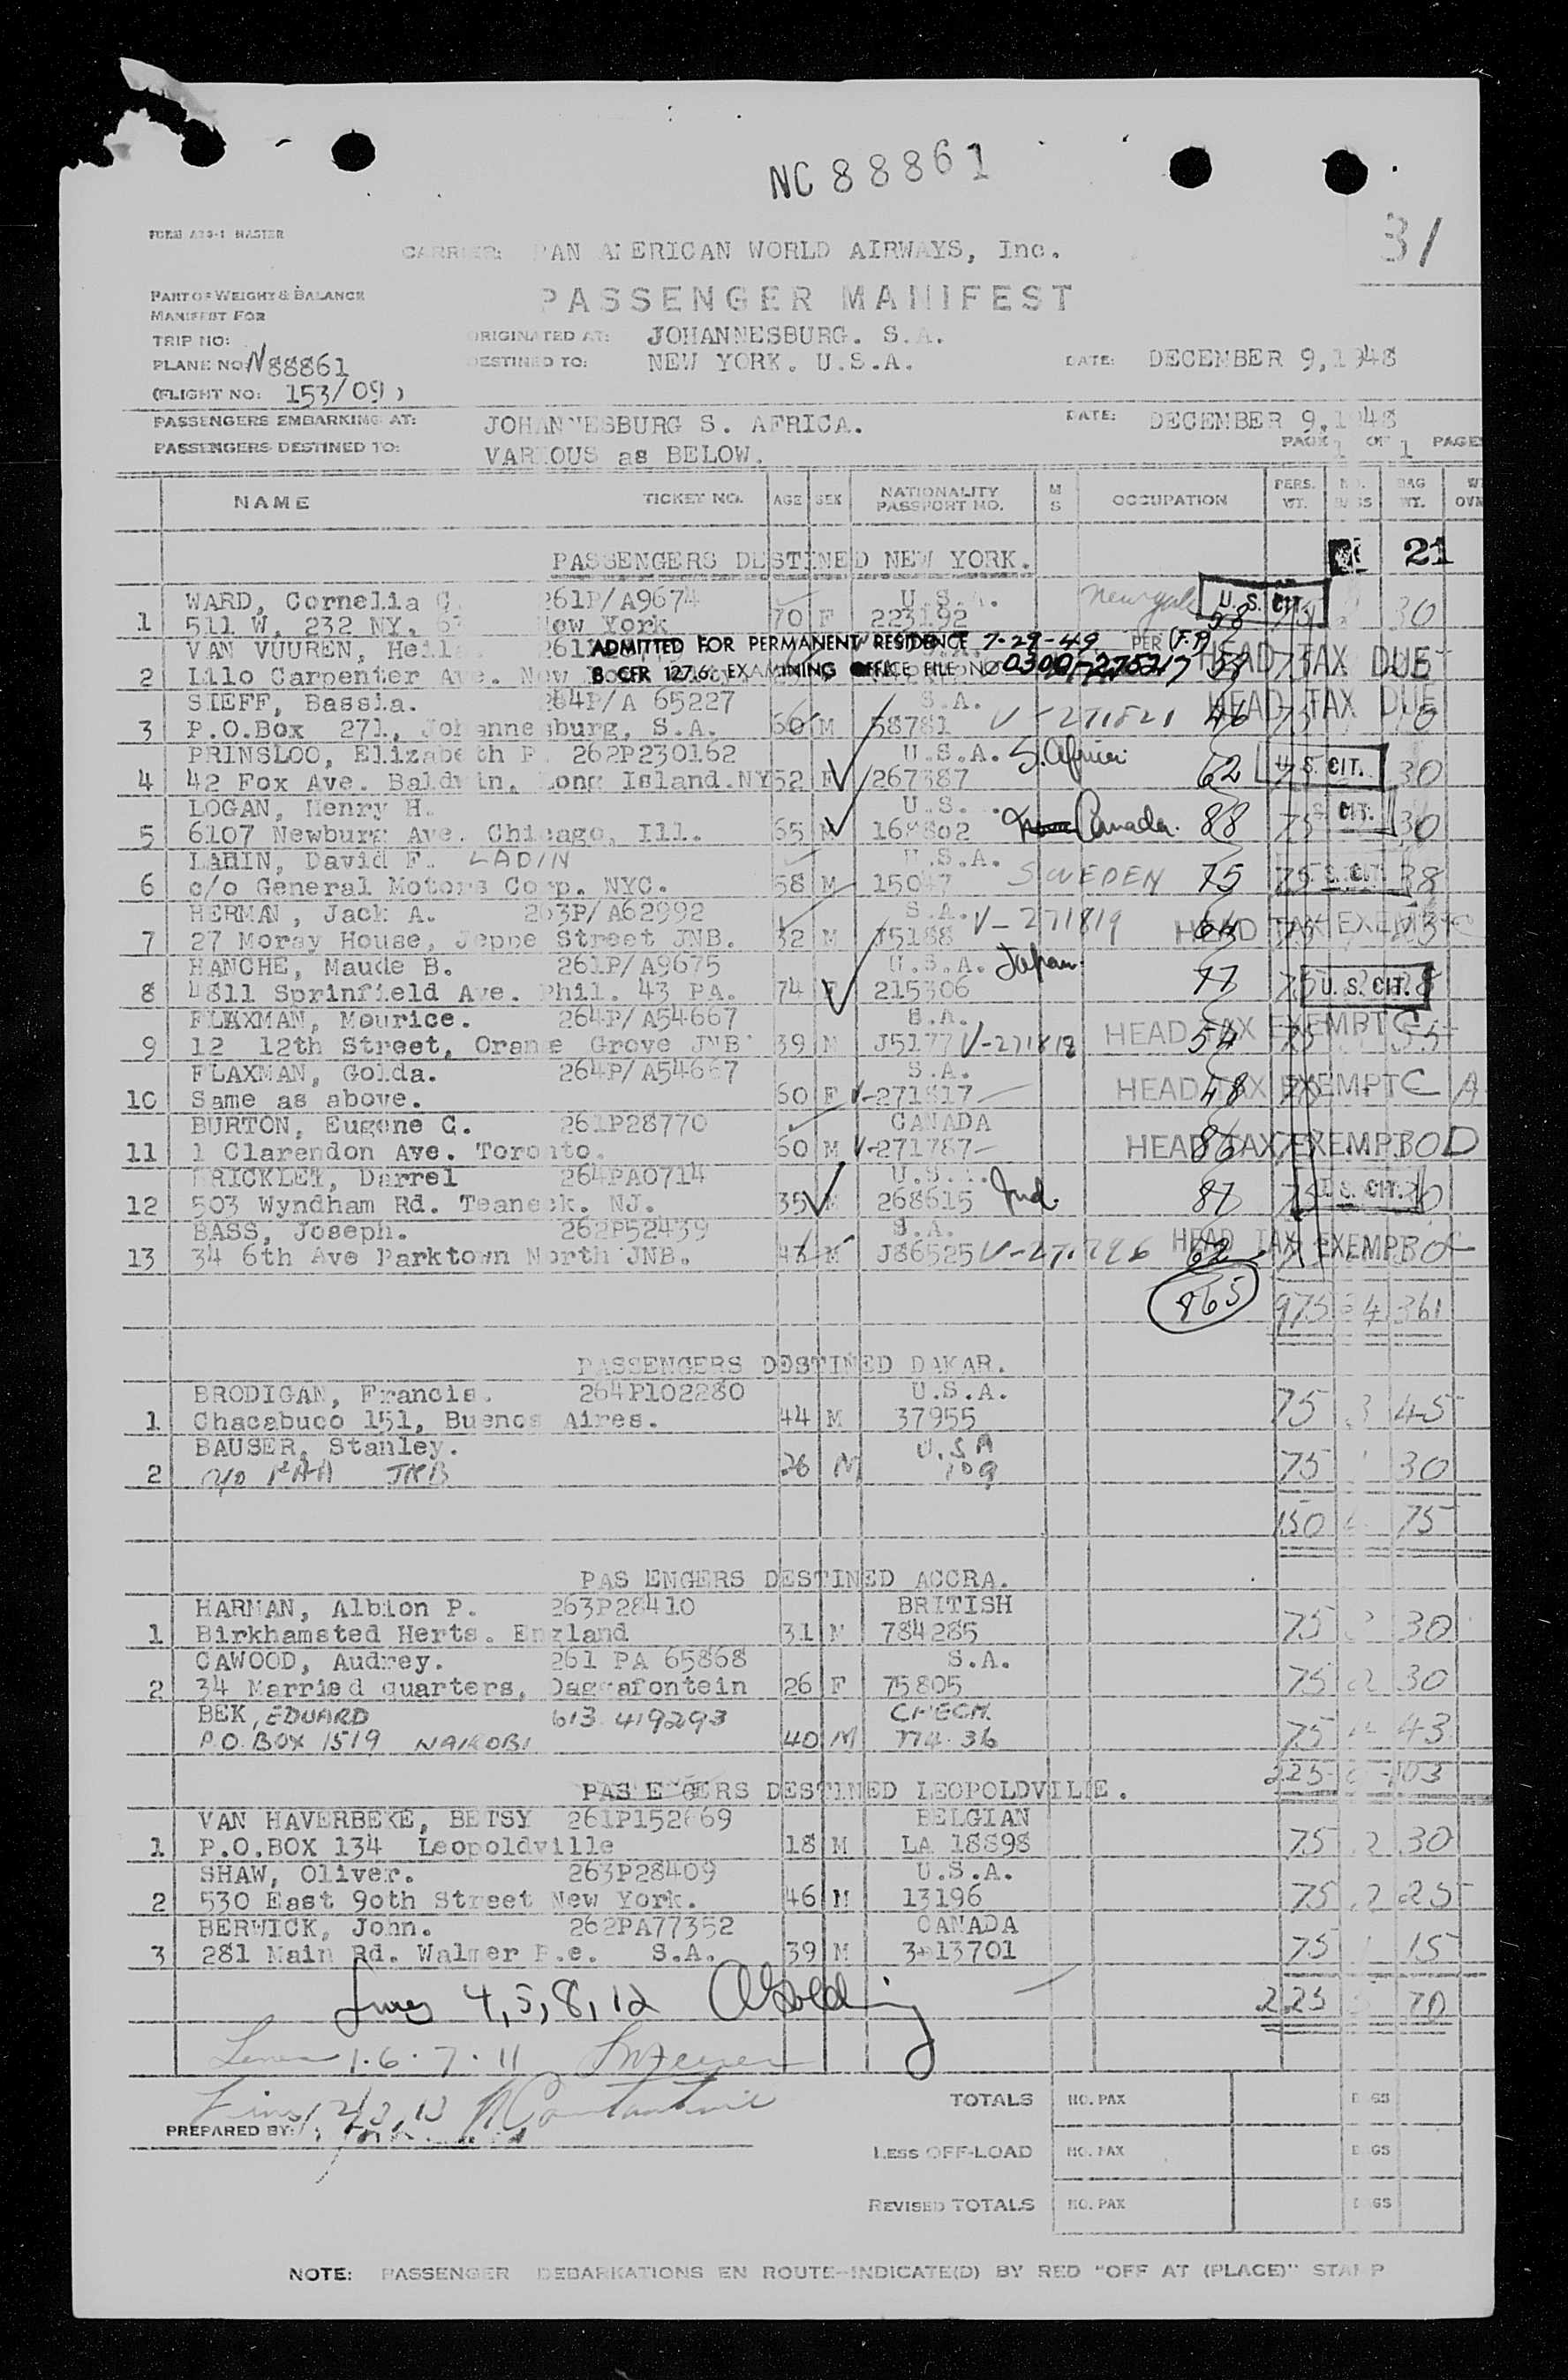 NC 88861
31
FORM A28-1 MASTER
CARRIER: PAN AMERICAN WORLD AIRWAYS, Inc.
PART OF WEIGHT & BALANCE
MANIFEST FOR
PASSENGER MANIFEST
TRIP NO:
ORIGINATED AT: JOHANNESBURG. S.A.
PLANE NO: N88861
DESTINED TO: NEW YORK. U.S.A. DATE: DECEMBER 9, 1948
(FLIGHT NO: 153/09)
PASSENGERS EMBARKING AT: JOHANNESBURG S. AFRICA. DATE: DECEMBER 9, 1948
PAGE 1 OF 1 PAGES
PASSENGERS DESTINED TO: VARIOUS as BELOW.
NAME TICKET NO. AGE SEX NATIONALITY PASSPORT NO. M S OCCUPATION PERS. WT. NO. BAGS BAG WT.
PASSENGERS DESTINED NEW YORK. 21
WARD, Cornelia C. 261P/A9674 U.S.A. U.S. CIT.
1 511 W. 232 NY. New York 70 F 223192 58 75 30
VAN VUUREN, ADMITTED FOR PERMANENT RESIDENCE 7-29-49 PER (F.P)
2 Carpenter Ave. New 8 CFR 127.6. EXAMINING OFFICE FILE NO 0300-278217 HEAD TAX DUE
SIEFF, Bassia. 264P/A 65227 S.A. HEAD TAX DUE
3 P.O.Box 271, Johannesburg, S.A. 60 M 58781 V-271821 46 75
PRINSLOO, Elizabeth P. 262P230162 U.S.A. S. Africa
4 42 Fox Ave. Baldwin, Long Island.NY 52 F 267387 62 75 U.S. CIT. 30
LOGAN, Henry H. U.S.
5 6107 Newburg Ave. Chicago, Ill. 65 M 168802 Canada. 88 75 CIT. 30
LADIN, David F. LADIN U.S.A.
6 c/o General Motors Corp. NYC. 58 M 15047 SWEDEN 75 75 U.S. CIT. 38
HERMAN, Jack A. 263P/A62992 S.A.
7 27 Moray House, Jeppe Street JNB. 32 M J5188 V-271819 HEAD TAX EXEMPT
HANCHE, Maude B. 261P/A9675 U.S.A. Japan
8 4811 Sprinfield Ave. Phil. 43 PA. 74 F 215306 77 75 U.S. CIT.
FLAXMAN, Mourice. 264P/A54667 S.A.
9 12 12th Street, Orange Grove JNB 39 M J5177 V-271818 HEAD TAX EXEMPT 54 75
FLAXMAN, Golda. 264P/A54667 S.A.
10 Same as above. 60 F V-271817 HEAD TAX EXEMPT 48 75
BURTON, Eugene C. 261P28770 CANADA
11 1 Clarendon Ave. Toronto. 60 M V-271787 HEAD TAX EXEMPT 86
BRICKLEY, Darrel 264PA0714 U.S.A.
12 503 Wyndham Rd. Teaneck. NJ. 35 M 268615 Ind. 87 75 U.S. CIT. 30
BASS, Joseph. 262P52439 S.A.
13 34 6th Ave Parktown North JNB. 43 M J86525 HEAD TAX EXEMPT 62
865 975 34 361
PASSENGERS DESTINED DAKAR.
BRODIGAN, Francis. 264P102280 U.S.A.
1 Chacabuco 151, Buenos Aires. 44 M 37955 75 3 45
BAUSER, Stanley. U.S.A
2 c/o PAA JNB 26 M 109 75 30
150 75
PAS ENGERS DESTINED ACCRA.
HARMAN, Albion P. 263P28410 BRITISH
1 Birkhamsted Herts. England 31 M 784285 75 30
CAWOOD, Audrey. 261 PA 65868 S.A.
2 34 Married quarters, Daggafontein 26 F 75805 75 2 30
BEK, EDUARD 613 419293 CHECH.
P.O. BOX 1519 NAIROBI 40 M 774.36 75 43
225 103
PAS E GERS DESTINED LEOPOLDVILLE.
VAN HAVERBEKE, BETSY 261P152669 BELGIAN
1 P.O.BOX 134 Leopoldville 18 M LA 18898 75 2 30
SHAW, Oliver. 263P28409 U.S.A.
2 530 East 90th Street New York. 46 M 13196 75 2 25
BERWICK, John. 262PA77352 CANADA
3 281 Main Rd. Walmer P.e. S.A. 39 M 3-13701 75 1 15
Lines 4, 5, 8, 12 Golding 225 5 70
Lines 1. 6. 7. 11
Lines 2, 3, 13
PREPARED BY:
TOTALS NO. PAX BAGS
LESS OFF-LOAD NO. PAX BAGS
REVISED TOTALS NO. PAX BAGS
NOTE: PASSENGER DEBARKATIONS EN ROUTE—INDICATE(D) BY RED "OFF AT (PLACE)" STAMP